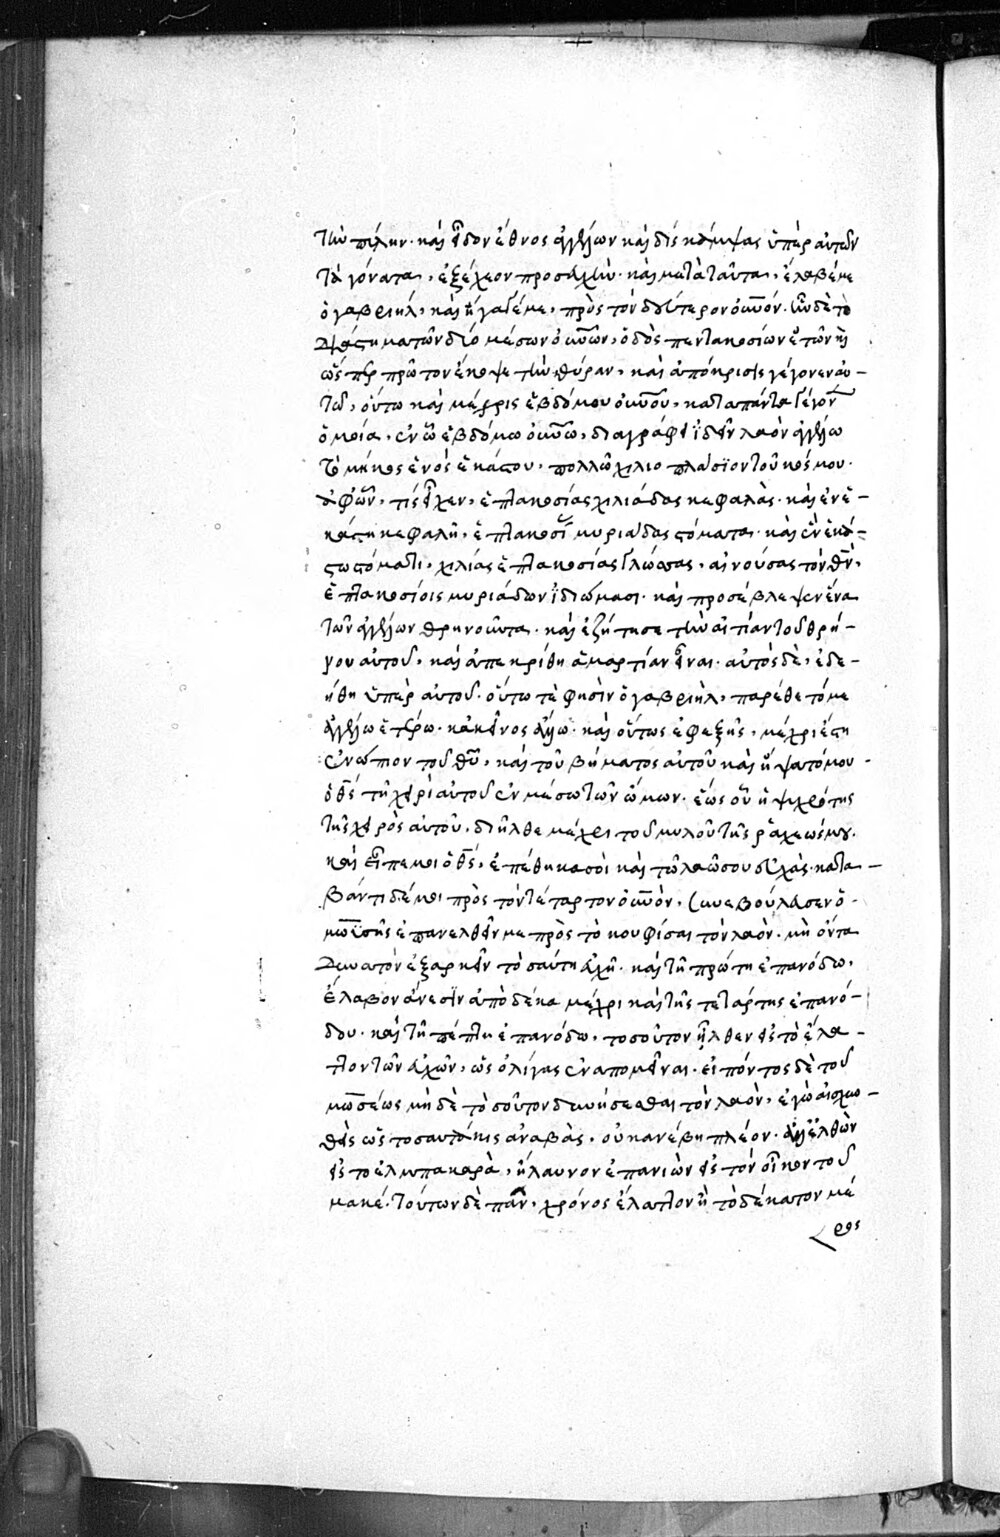 τὴν πύλην· καὶ εἶδον ἔθνος ἀγγέλων καὶ δὶς κάμψας ὑπὲρ αὐτῶν
τὰ γόνατα, ἐξέχεον προσευχήν· καὶ μετὰ ταῦτα, ἔλαβέ με
ὁ γαβριὴλ, καὶ ἤγαγέ με, πρὸς τὸν δεύτερον οὐνόν· ἦν δὲ τὸ
διάστημα τῶν δύο μέσων οὐνῶν, ὁδὸς πεντακοσίων ἐτῶν καὶ
ὥσπερ πρῶτον ἔκοψε τὴν θύραν, καὶ ἀπόκρισις γέγονεν αὐ-
τῷ, οὕτω καὶ μέχρις ἑβδόμου οὐνοῦ, κατα πάντα γέγον
ὁμοία, ἐν ᾧ ἑβδόμω οὐνῶ, διαγράφει ἰδεῖν λαὸν ἀγγέλω
τὸ μῆκος ἑνὸς ἑκάστου, πολλῶ χιλιοπλασίον τοῦ κόσμου·
ἀφ ὧν, τίς εἶχεν, ἑπτακοσίας χιλιάδας κεφαλὰς· καὶ ἐν ἑ-
κάστη κεφαλῆ, ἑπτακοσί μυριάδας στόματα· καὶ ἐν ἑκά-
στω στόματι, χιλίας ἑπτακοσίας γλώσσας, αἰνούσας τὸν θν,
ἑπτακοσίοις μυριάδων ἰδιώμασι· καὶ προσέβλεψεν ἕνα
τῶν ἀγγέλων θρηνοῦντα· καὶ ἐζήτησε τὴν αἰτίαν τοῦ θρή-
νου αὐτοῦ, καὶ ἀπεκρίθη ἁμαρτίαν εἶναι· αὐτὸς δὲ, ἐδε-
ήθη ὑπὲρ αὐτοῦ· οὕτω τὲ φησὶν ὁ γαβριὴλ, παρέθετό με
ἀγγέλω ἑτέρω· κἀκεῖνος ἄλλω· καὶ οὕτως ἐφεξῆς, μέχρι ἔστη
ἐνώπιον τοῦ θυ, καὶ τοῦ βήματος αὐτοῦ καὶ ἥψατό μου
ὁ θς τῆ χειρὶ αὐτοῦ ἐν μέσω τῶν ὤμων· ἕως οὗ ἡ ψυχρότης
τῆς χειρὸς αὐτοῦ, διῆλθε μέχρι τοῦ μυελοῦ τῆς ῥάχεως μου·
καὶ εἶπε μοι ὁ θς, ἐπέθηκα σοὶ καὶ τῶ λαῶ σου εὐχάς· κατα-
βάντι δέ μοι πρὸς τὸν τέταρτον οὐνὸν, συνεβούλευσεν ὁ
μωϋσῆς ἐπανελθεῖν με πρὸς τὸ κουφίσαι τὸν λαὸν· μὴ ὄντα
δυνατὸν ἐξαρκεῖν τοσαύτη εὐχῆ· καὶ τῆ πρώτη ἐπανόδω,
ἔλαβον ἄνεσιν ἀπὸ δέκα μέχρι καὶ τῆς τετάρτης ἐπανό-
δου· καὶ τῆ πέμπτη ἐπανόδω, τοσοῦτον ἦλθεν εἰς τὸ ἔλα-
ττον τῶν εὐχῶν, ὡς ὀλίγας ἐναπομεῖναι· εἰπόντος δὲ τοῦ
μωσέως μὴ δὲ τὸσοῦτον δυνήσεσθαι τὸν λαὸν, ἐγὼ αἰσχυν-
θεὶς ὡς τοσαυτάκις ἀναβὰς, οὐκ ἀνέβην πλέον· ἀλλ ἐλθὼν
εἰς το ἐλμπακαρὰ, ἤλαυνον ἐπανιὼν εἰς τὸν οἶκον τοῦ
μακέ· τούτων δὲ πάν, χρόνος ἔλαττον ἢ τὸ δέκατον μέ
ρος